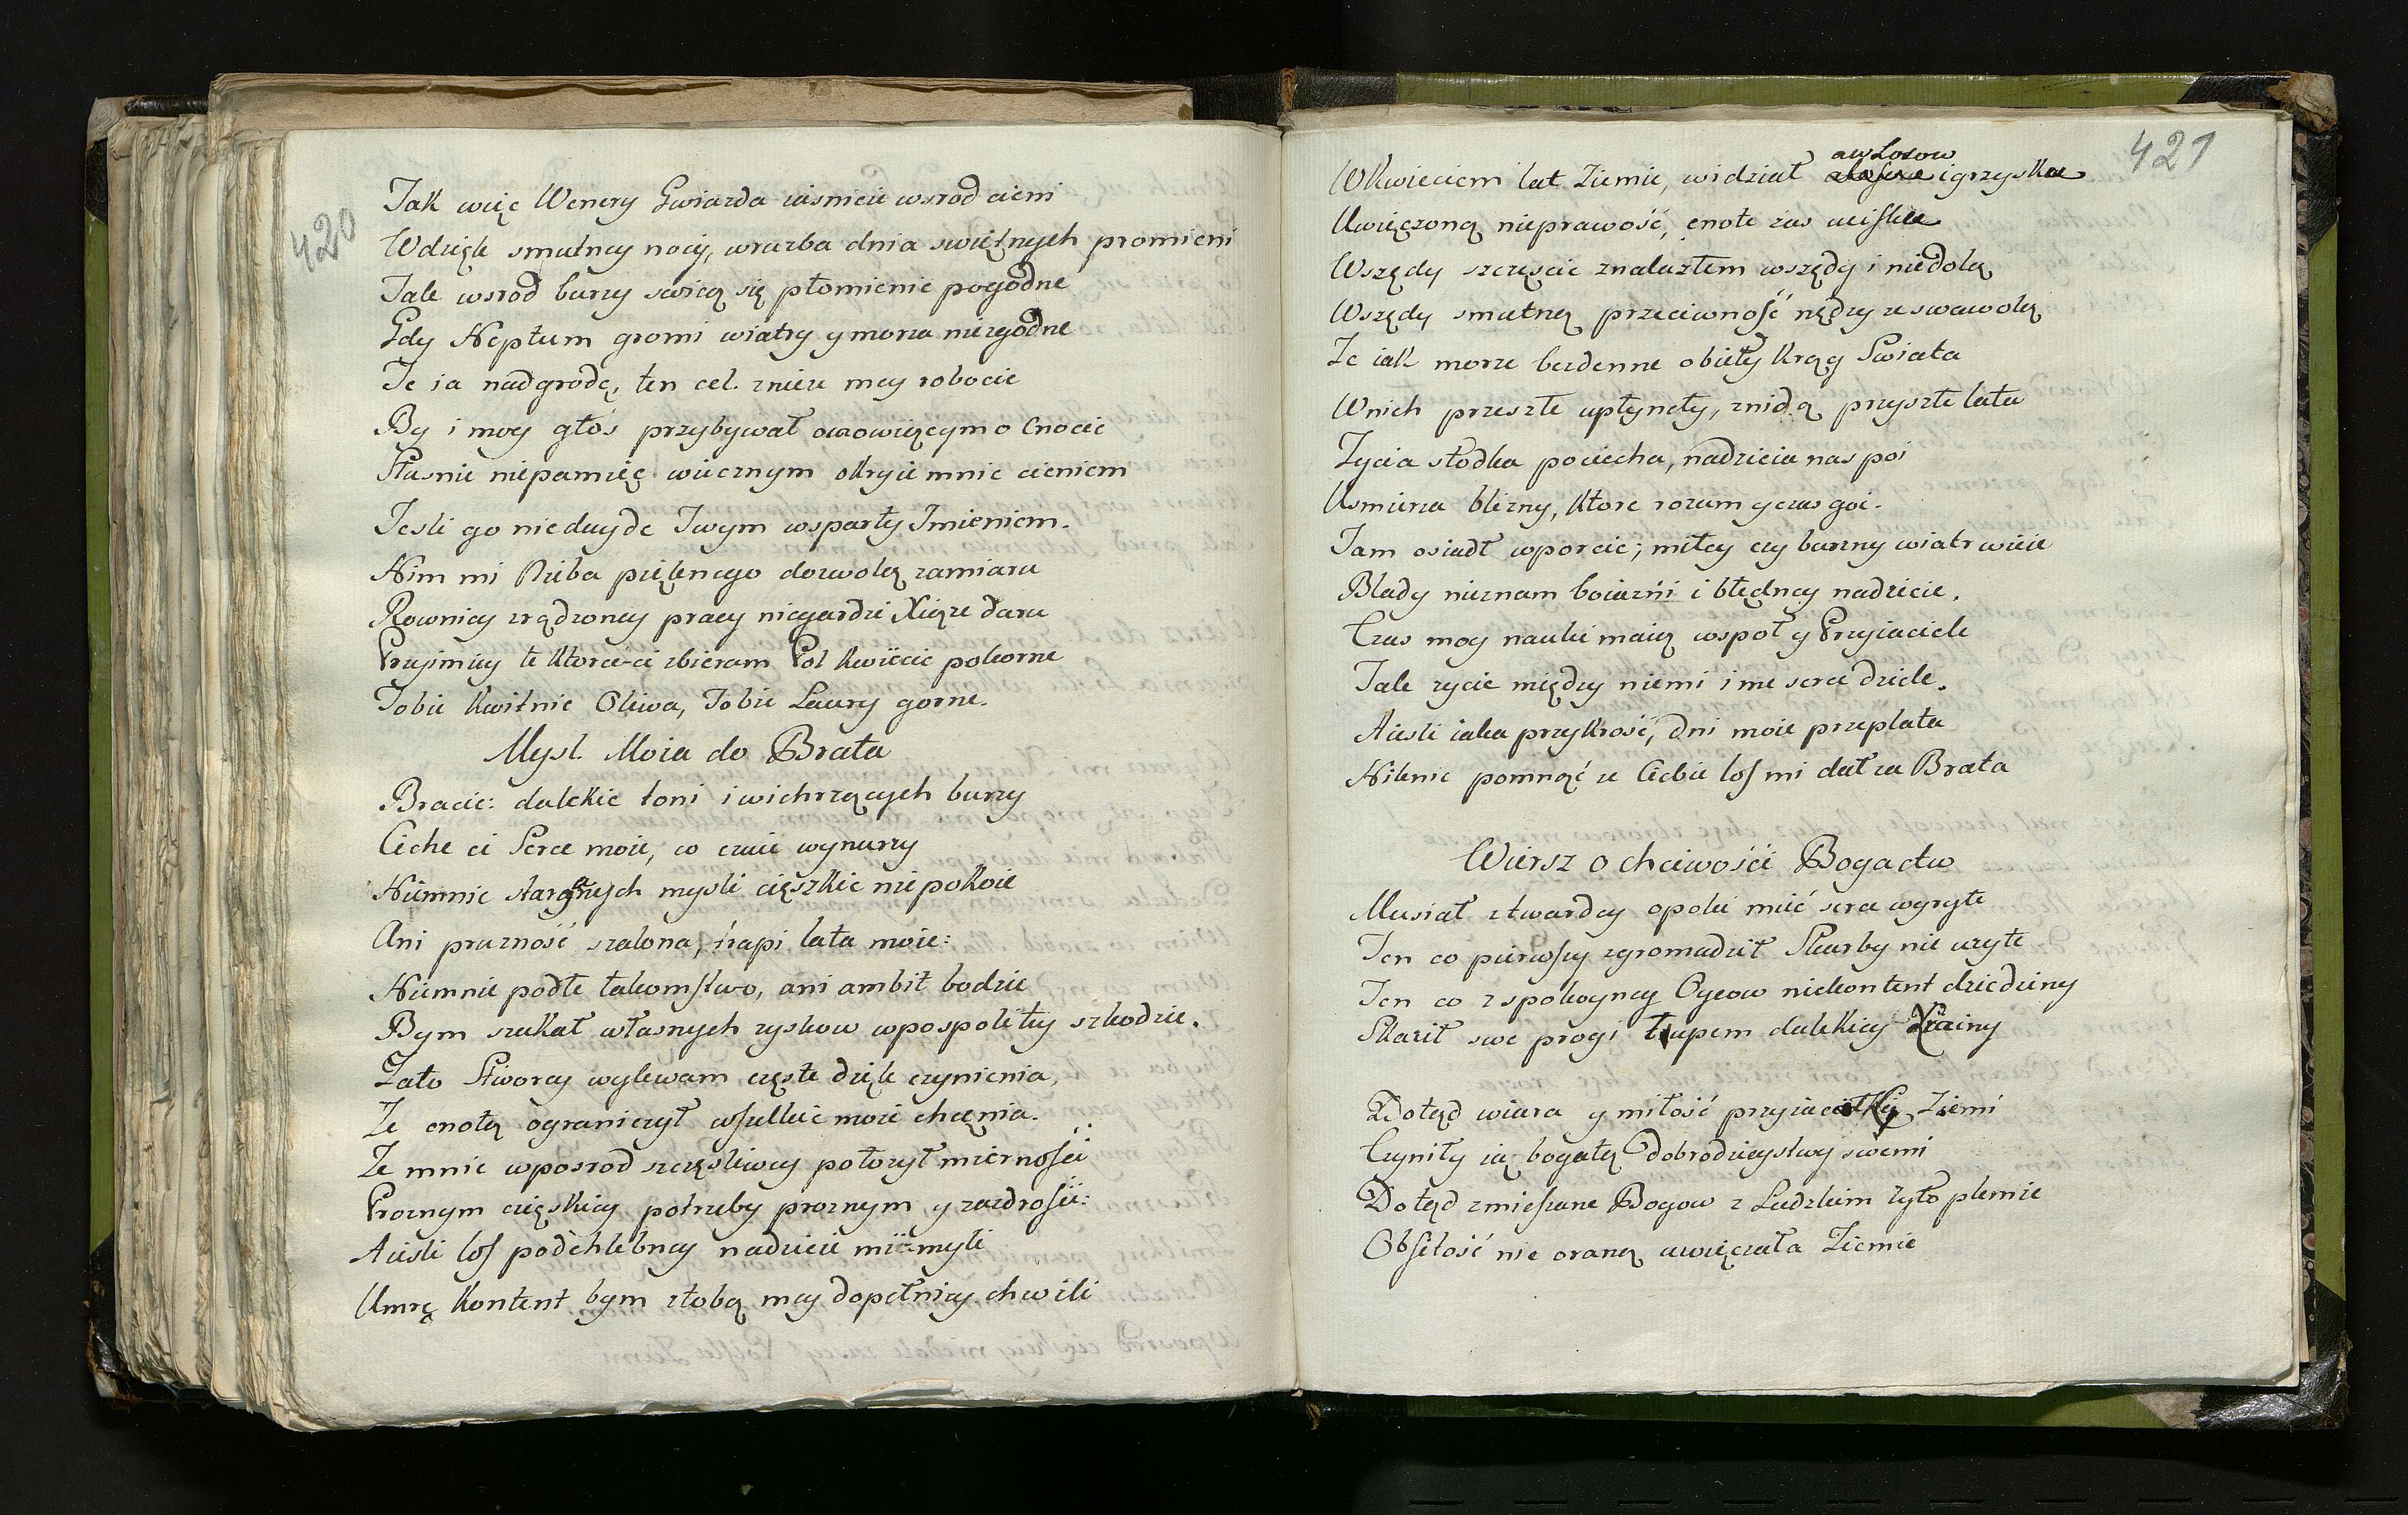 420
Jak więc Wenery Gwiazda iasnieie wsrod cieni
Wdzięk smutney nocy, wrozba dnia swietnych promieni
Tak wsrod burzy swiecą się płomienie pogodne
Gdy Neptun gromi wiatry y morza niezgodne
Te ia nadgrodę, ten cel znieze mey robocie
By i moy głos przybywał mowiącym o Cnocie
Własnie niepamięć wiecznym okryie mnie cieniem
Jesli go nieduyde Twym wsparty Imieniem.
Nim mi Nieba pięknego dozwolą zamiaru
Rownicy zrądzoney pracy niegardzi Xiąze daru
Przyimiiy te ktore-ci zbieram Pol kwiecie pokorne
Tobie kwitnie Oliwa, Tobie Laury gorne.
Mysl. Moia do Brata
Bracie: dalekie toni i wichrzących burzy
Ciche ci Serce moie, co czuie wynurzy
Niemnie starganych mysli cięszkie niepokoie
Ani prozność szalona, trapi lata moie:
Niemnie podłe łakomstwo, ani ambit bodzie
Bym szukał własnych zyskow wpospolitey szkodzie.
Zato Stworcy wylewam częste dzięk czynienia,
Ze cnotą ograniczył wszelkie moie chcenia.
Ze mnie wposrod szczęsliwey położył miernosci
Proznym cięskiey potrzeby proznym y zazdrosci:
A iesli los podchlebney nadzieie mi zmyli
Umrę kontent bym z tobą mey dopełnił chwili
421
W Kwieciem lat Ziemie, widział a w Losow igrzyska
Uwięczoną nieprawość, cnote zas uciska
Wszędy szczęscie znalazłem wszędy i niedolą
Wszędy smutną przeciwność nędzy ze swawolą
Ze iak morze bezdenne obiety krąg Swiata
Wnich przeszłe upłynęły, znidą przyszłe lata
Zycia słodka pociecha, nadzieia nas poi
Usmierza blizny, ktore rozum y czas goi.
Tam osiadł wporcie; miłey czy burzny wiatr wieie
Blady nieznam boiazni i błędney nadzieie.
Czas moy nauki maią wspoł y Przyiaciele
Tak zycie między niemi i me serce dziele.
A iesli iaka przykrość, dni moie przeplata
Niknie pomnąć ze Ciebie los mi dał za Brata
Wiersz o chciwości Bogactw
Musiał z twardey opoki mieć serce wyryte
Ten co pierwszy zgromadził Skarby nie uzyte
Ten co z spokoyney Oycow niekontent dziedziny
Skaził swe progi łupem dalekiey Krainy
Dotąd wiara y miłość przyiaciołki Ziemi
Czyniły ią bogatą dobrodzieystwy swemi
Dotąd zmieszane Bogow z Ludzkim zyło plemie
Obfitość nie oraną uwięczała Ziemie